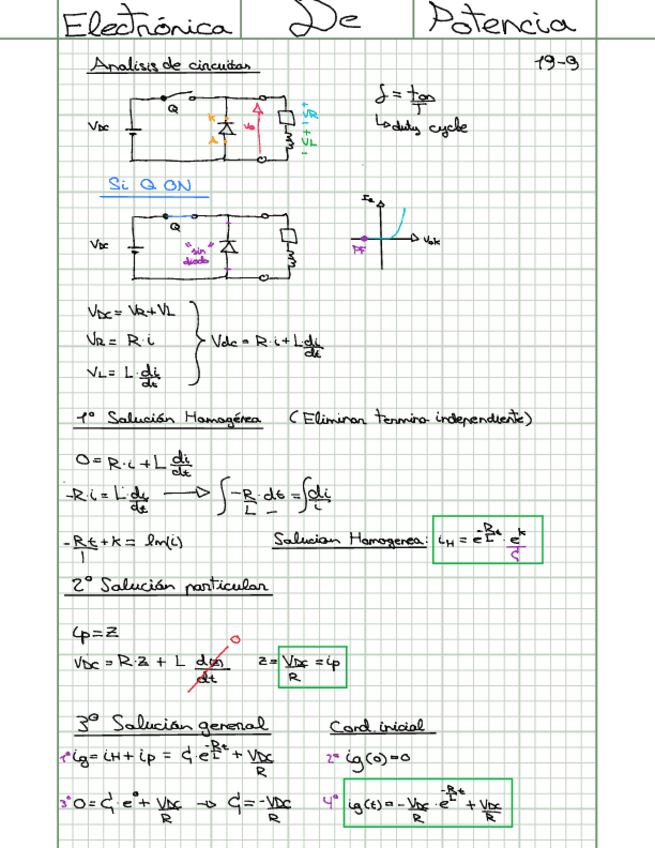 Electrónica De Potencia
Analisis de circuitos 19-9
δ = ton/T
↳ duty cycle
Q
VDC
K
A
Vo
+ VR - + VL -
Si Q ON
VDC
Q
"sin diodo"
Vak
PF
VDC = VR + VL
VR = R·i
VL = L·di/dt
Vdc = R·i + L di/dt
1º Solución Homogénea (Eliminar termino independiente)
0 = R·i + L di/dt
-R·i = L·di/dt → ∫ -R/L · dt = ∫ di/i
-Rt/L + k = ln(i) Solucion Homogenea: iH = e^(-R/L t) · e^k
C1
2º Solución particular
ip = Z
VDC = R·Z + L d(z)/dt 0 Z = VDC/R = ip
3º Solución general Cond. inicial
1º ig = iH + ip = C1·e^(-R/L t) + VDC/R 2º ig(0) = 0
3º 0 = C1·e^0 + VDC/R → C1 = -VDC/R 4º ig(t) = -VDC/R · e^(-R/L t) + VDC/R